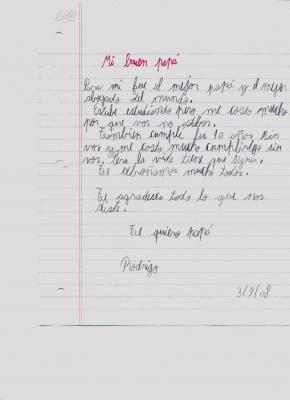 Mi buen papá
Para mi fue el mejor papá y el mejor
abogado del mundo.
Estube estudiando pero me costo mucho
por que vos no estabas.
También cumplí los 10 años sin
vos y me costo mucho cumplirlos sin
vos. Pero la vida tiene que seguir.
Te extrañamos mucho todos.
Te agradezco todo lo que nos
diste.
Te quiero papá
Rodrigo
3/9/08